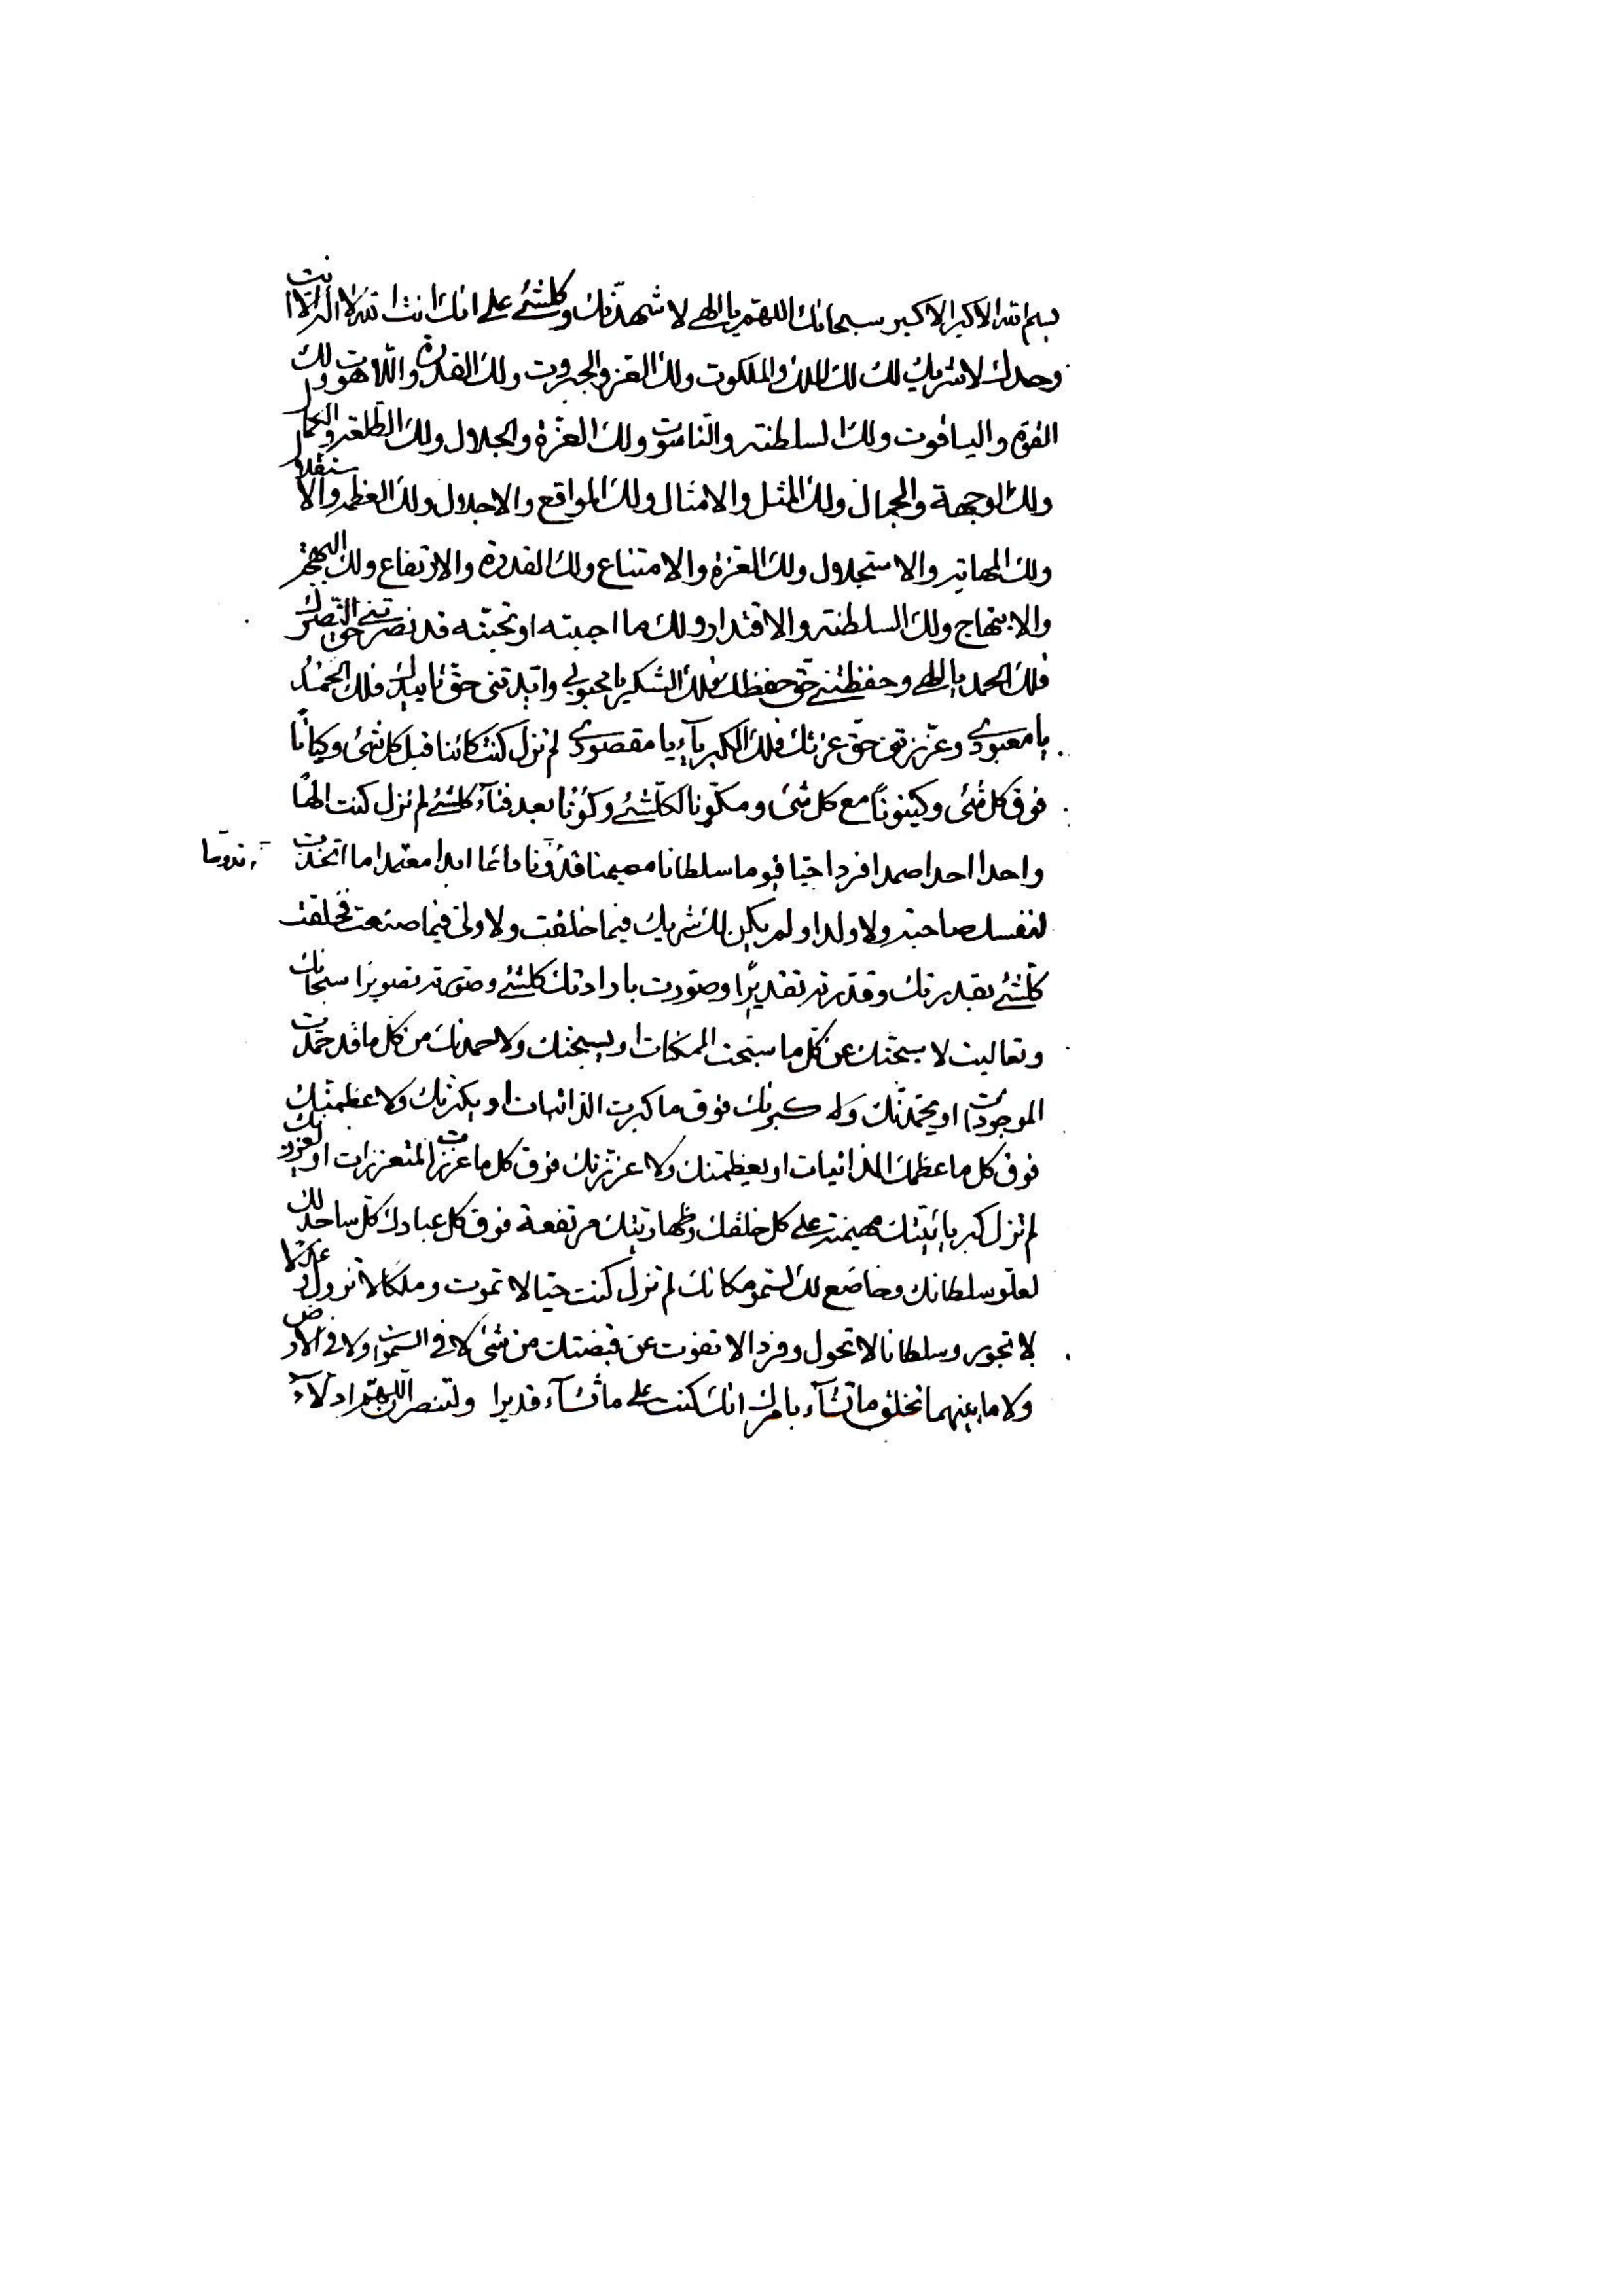 بسم الله الاکبر الاکبر سبحانك اللهم یا الهی لاشهدنك وکلشئ علی انك انت الله لا اله الا انت
وحدك لا شریك لك لك الملك والملکوت ولك العز والجبروت ولك القدرة واللاهوت ولك
القوة والیاقوت ولك السلطنة والناسوت ولك العزة والجلال ولك الطلعة والکمال
ولك الوجهة والجمال ولك المثل والامثال ولك المواقع والاجلال ولك العظمة والاستقلال
ولك المهابة والاستجلال ولك العزة والامتناع ولك القدرة والارتفاع ولك البهجة
والابتهاج ولك السلطنة والاقتدار ولك ما احببته او تحبنه قد نصرتنی حق نصرك
فلك الحمد یا الهی وحفظتنی حق حفظك فلك الشکر یا محبوبی وایدتنی حق تاییدك فلك الحمد
یا معبودی وعززتنی حق عزتك فلك الکبریآء یا مقصودی لم تزل کنت کائنا قبل کل شئ وکیانا
فوق کل شئ وکینونا مع کل شئ ومکونا لکلشئ وکونا بعد فنآء کلشئ لم تزل کنت الها
واحدا احدا صمدا فردا حیا قیوما سلطانا مهیمنا قدوسا دائما ابدا معتمدا ما اتخذت
لنفسك صاحبة ولا ولدا ولم یکن لك شریك فیما خلقت ولا ولی فیما صنعت فخلقت
کلشئ بقدرتك وقدرته تقدیرا وصورت بارادتك کلشئ وصورته تصویرا سبحانك
وتعالیت لاسبحنك عن کل ما سبحت الممکنات او یسبحنك ولاحمدنك من کل ما قد حمدت
الموجودات او یحمدنك ولاکبرنك فوق ما کبرت الذاتیات او یکبرنك ولاعظمنك
فوق کل ما عظمك الذاتیات او یعظمنك ولاعززنك فوق کل ما عززت المتعززات او یعززنك
لم تزل کبریائیتك مهیمنة علی کل خلقك وظهاریتك مرتفعة فوق کل عبادك کل ساجد لك
لعلو سلطانك وخاضع لك لسمو مکانك لم تزل کنت حیا لا تموت وملکا لا تزول وعدلا
لا تجور وسلطانا لا تحول وفردا لا تفوت عن قبضتك من شئ لا فی السموات ولا فی الارض
ولا ما بینهما تخلق ما تشآء بامرك انك کنت علی ما تشآء قدیرا ولتنصرن اللهم ادلآء